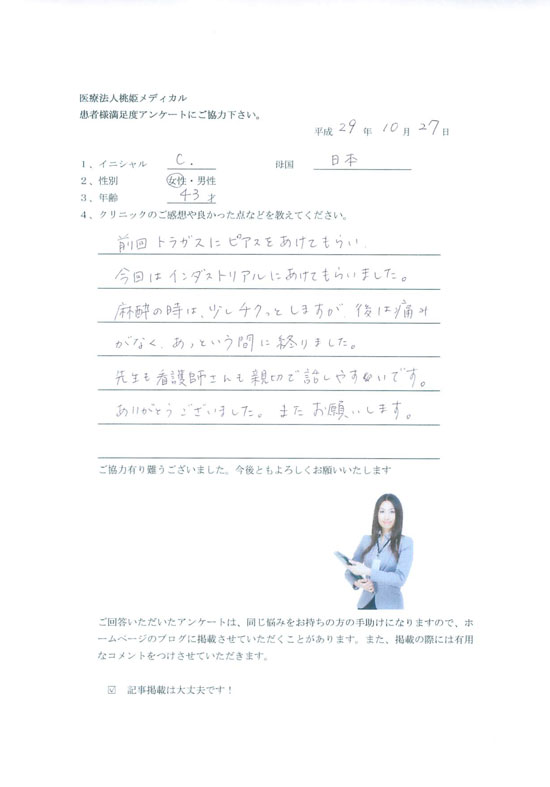 医療法人桃姫メディカル
患者様満足度アンケートにご協力下さい。
平成 29 年 10 月 27 日
1、イニシャル C. 母国 日本
2、性別 女性・男性
3、年齢 43 才
4、クリニックのご感想や良かった点などを教えてください。
前回トラガスにピアスをあけてもらい、
今回はインダストリアルにあけてもらいました。
麻酔の時は、少しチクっとしますが、後は痛み
がなく、あっという間に終りました。
先生も看護師さんも親切で話しやすいです。
ありがとうございました。またお願いします。
ご協力有り難うございました。今後ともよろしくお願いいたします
ご回答いただいたアンケートは、同じ悩みをお持ちの方の手助けになりますので、ホ
ームページのブログに掲載させていただくことがあります。また、掲載の際には有用
なコメントをつけさせていただきます。
☑ 記事掲載は大丈夫です！